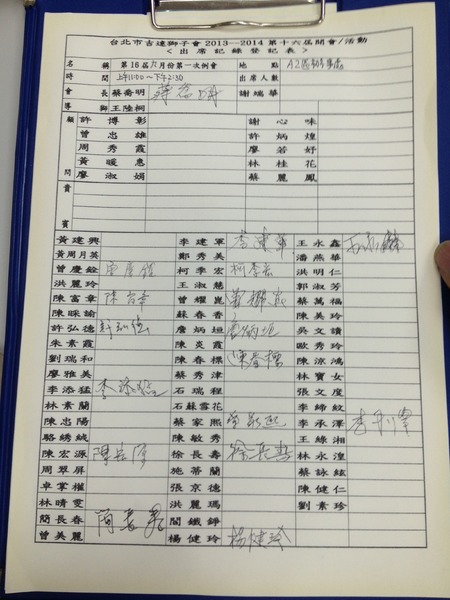 台北市吉達獅子會 2013—2014 第十六屆開會/活動
< 出席記錄登記表 >
名稱 第16屆六月份第一次例會 地點
時間 上午11:00～下午2:30 出席人數
會長 蔡喬明 謝瑞華
導獅 王陸桐
顧問 許博彰 謝心味
曾忠雄 許炳煌
周秀霞 廖若妤
黃暖惠 林桂花
廖淑娟 蔡麗鳳
貴賓
黃建興 李建軍 李建軍 王永鑫 王永鑫
黃周月英 鄭秀美 潘燕華
曾慶銓 曾慶銓 柯季宏 柯季宏 洪明仁
洪麗玲 王淑慈 郭淑芳
陳富章 陳富章 曾耀崑 蔡萬福
陳睬諭 蘇春香 陳美玲
許弘德 許弘德 詹炳垣 詹炳垣 吳文讀
朱素霞 陳炎霞 歐秀玲
劉瑞和 陳春樑 陳春樑 陳涼鴻
廖雅美 蔡秀津 林寶女
李添猛 李添猛 石瑞程 張文度
林素蘭 石蘇雪花 李締紋
陳忠陽 蔡家熙 李承澤 李承澤
駱綉絨 陳敏秀 王綠湘
陳宏源 陳宏源 徐長壽 徐長壽 林永湟
周翠屏 施蒂蘭 蔡詠絃
卓掌權 張京德 陳健仁
林晴雯 洪麗瑪 劉素珍
簡長春 簡長春 閻鐵錚
曾美麗 楊健玲 楊健玲